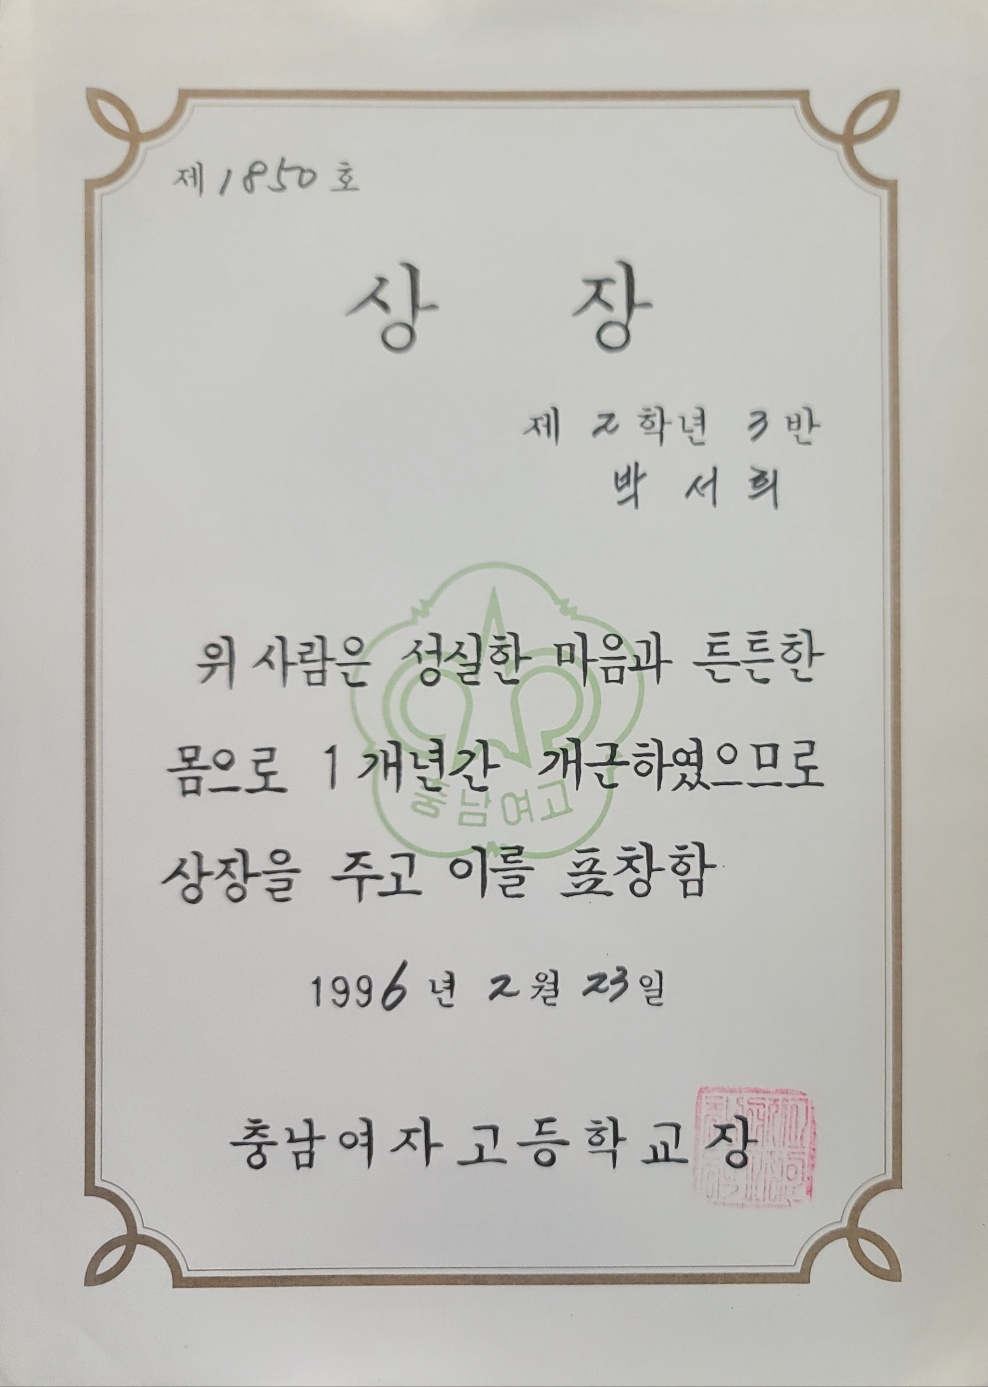 제 1850 호
상 장
제 2 학년 3 반
박 서 희
위 사람은 성실한 마음과 튼튼한
몸으로 1 개년간 개근하였으므로
충남여고
상장을 주고 이를 표창함
1996 년 2 월 23 일
충남여자고등학교장